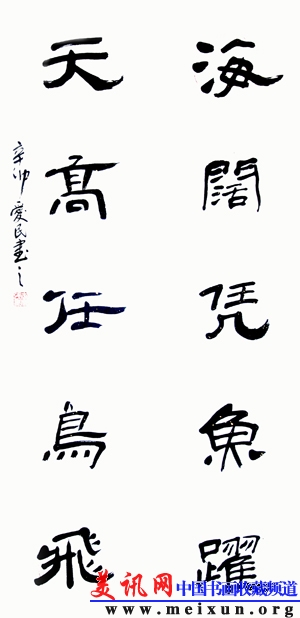 海闊凭魚躍
天高任鳥飛
辛卯愛民書之
美讯网 中国书画收藏频道
www.meixun.org